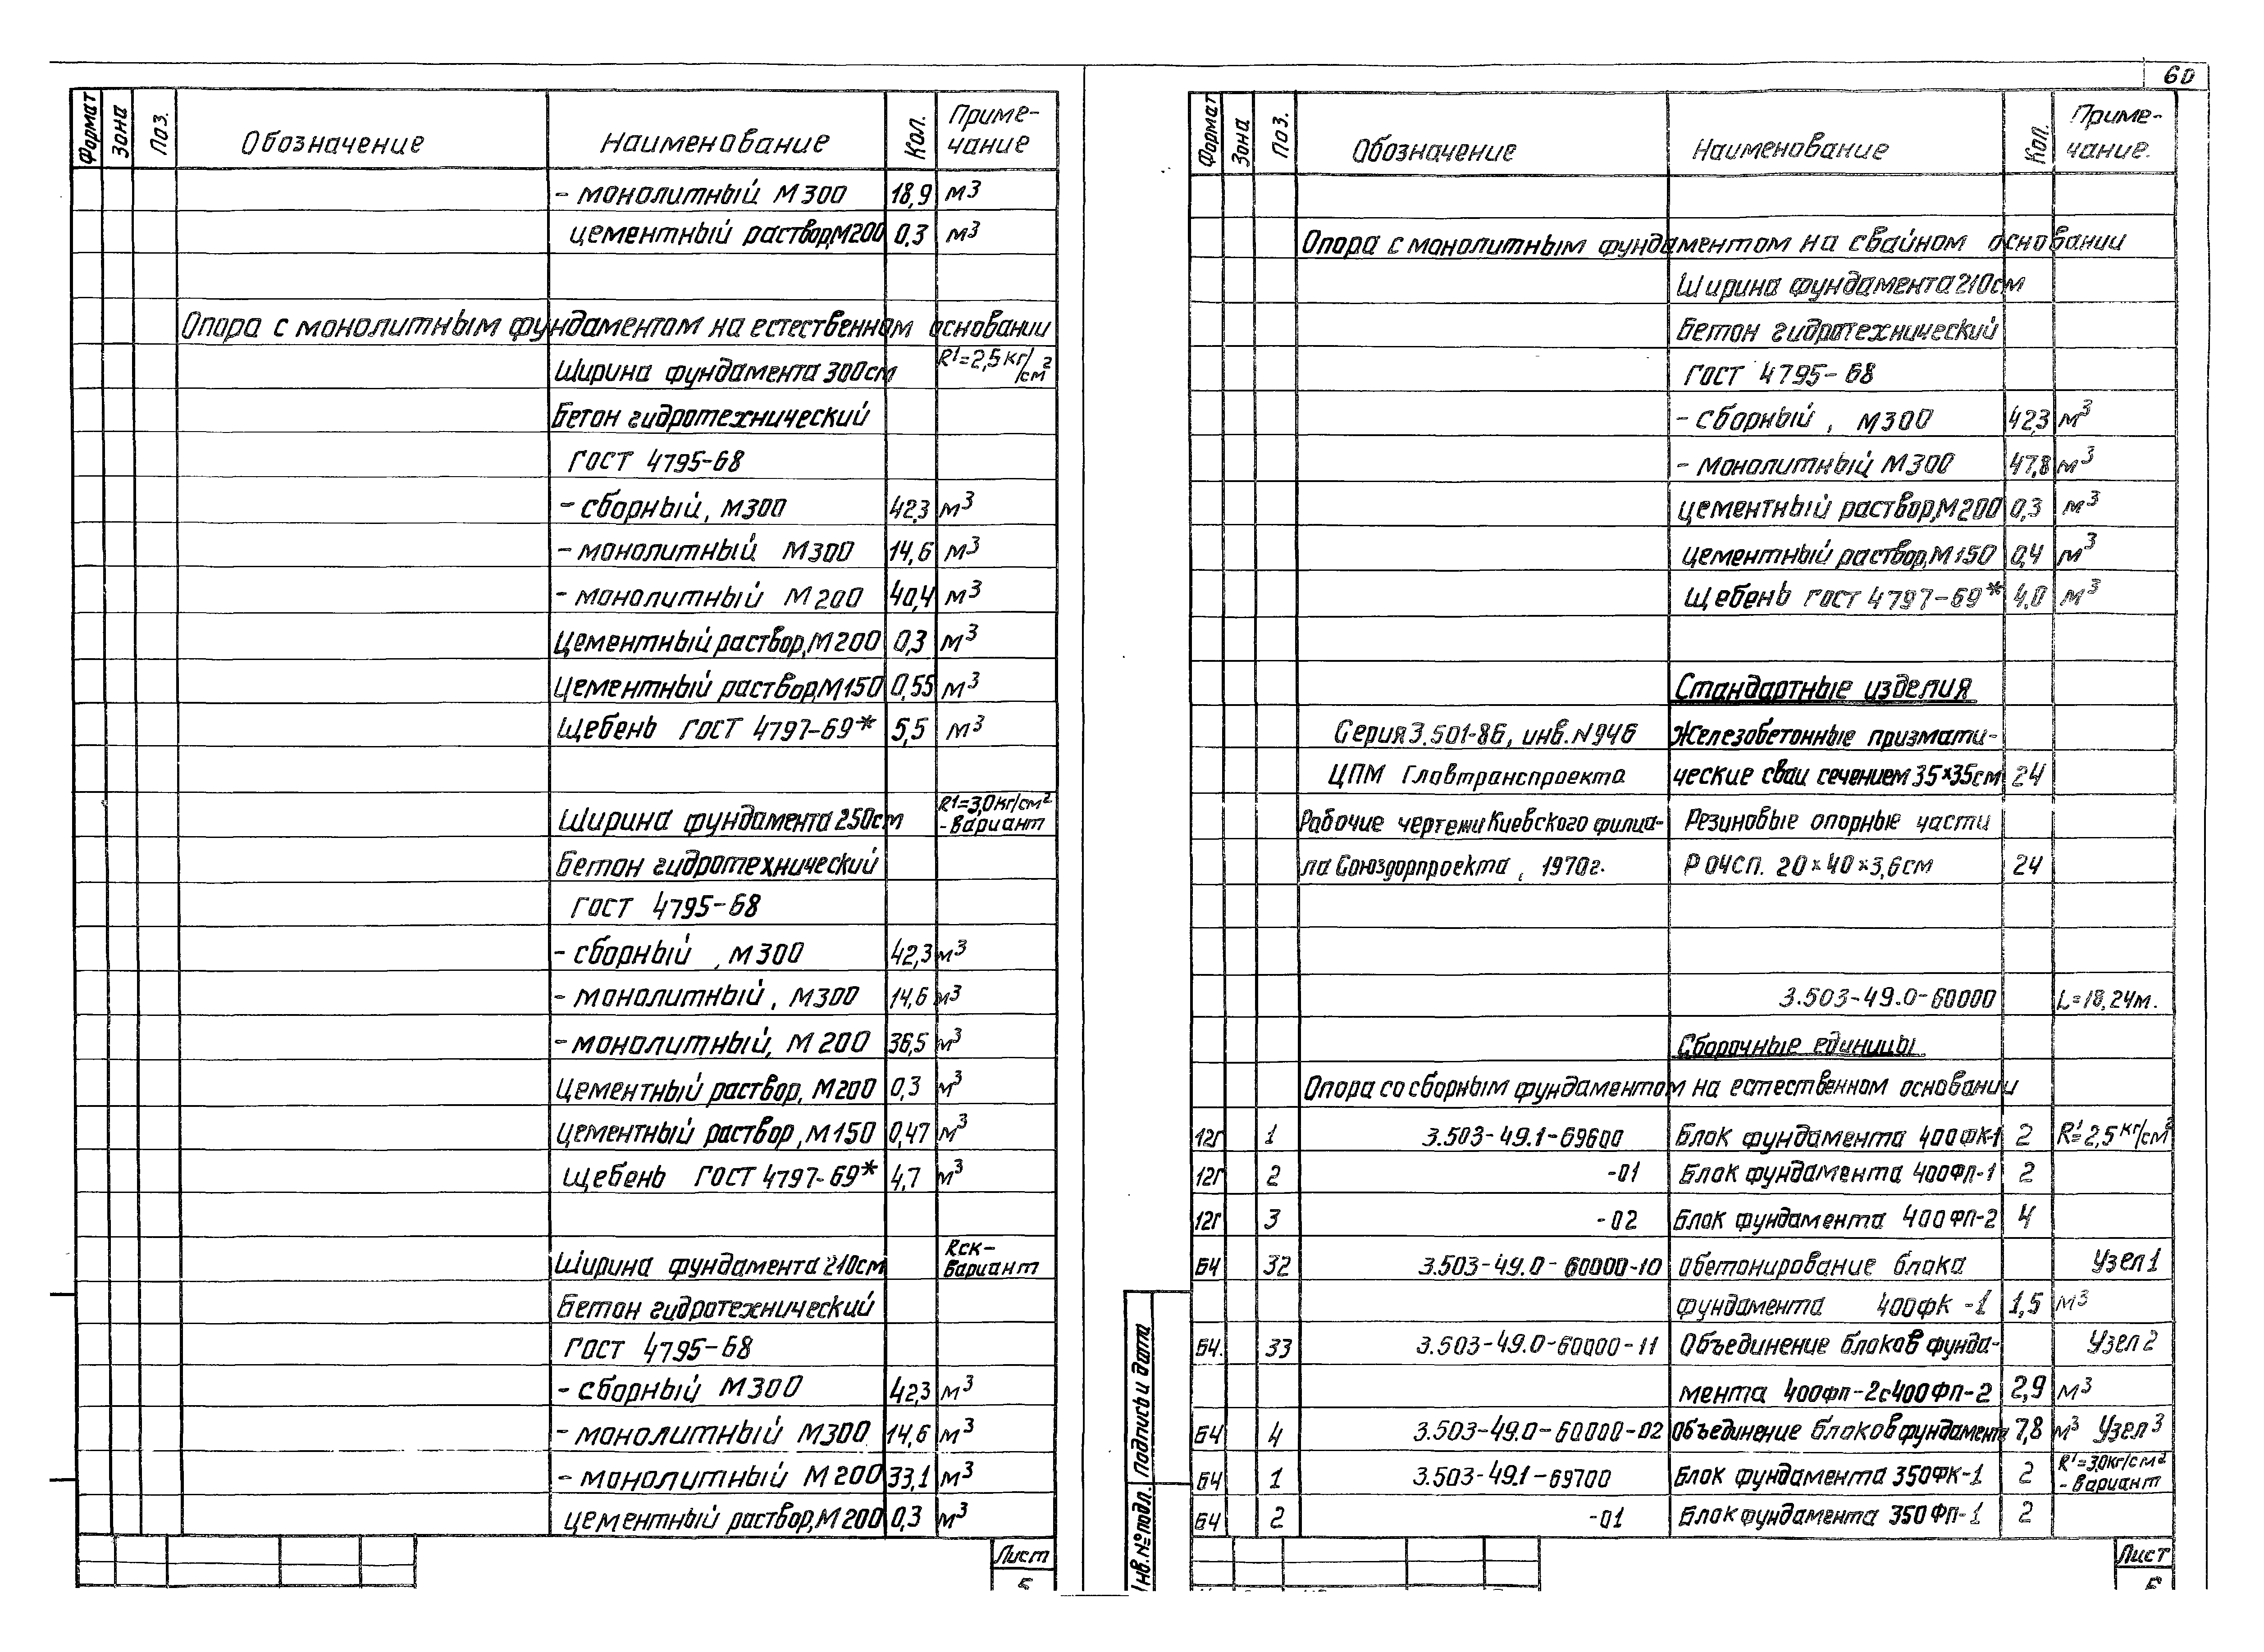 60
Формат Зона Поз. Обозначение Наименование Кол. Приме-
чание
- монолитный М300 18,9 м3
цементный раствор,М200 0,3 м3
Опора с монолитным фундаментом на естественном основании
Ширина фундамента 300см R'=2,5кг/см2
Бетон гидротехнический
ГОСТ 4795-68
- сборный, М300 42,3 м3
- монолитный М300 14,6 м3
- монолитный М200 40,4 м3
Цементный раствор,М200 0,3 м3
Цементный раствор,М150 0,55 м3
Щебень ГОСТ 4797-69* 5,5 м3
Ширина фундамента 250см R'=3,0кг/см2
-вариант
Бетон гидротехнический
ГОСТ 4795-68
- сборный , М300 42,3 м3
- монолитный, М300 14,6 м3
- монолитный, М200 36,5 м3
Цементный раствор, М200 0,3 м3
Цементный раствор, М150 0,47 м3
Щебень ГОСТ 4797-69* 4,7 м3
Ширина фундамента 210см Rск-
вариант
Бетон гидротехнический
ГОСТ 4795-68
- сборный М300 42,3 м3
- монолитный М300 14,6 м3
- монолитный М200 33,1 м3
цементный раствор,М200 0,3 м3
Лист
Формат Зона Поз. Обозначение Наименование Кол. Приме-
чание.
Опора с монолитным фундаментом на свайном основании
Ширина фундамента 210см
Бетон гидротехнический
ГОСТ 4795-68
- сборный , М300 42,3 м3
- монолитный М300 47,8 м3
цементный раствор,М200 0,3 м3
цементный раствор,М150 0,4 м3
Щебень ГОСТ 4797-69* 4,0 м3
Стандартные изделия
Серия 3.501-86, инв.N946 Железобетонные призмати-
ЦПМ Главтранспроекта ческие сваи сечением 35×35см 24
Рабочие чертежи Киевского филиа- Резиновые опорные части
ла Союздорпроекта , 1970г. РОЧСП. 20×40×3,6см 24
3.503-49.0-60000 L=18,24м.
Сборочные единицы
Опора со сборным фундаментом на естественном основании
12Г 1 3.503-49.1-69600 Блок фундамента 400ФК-1 2 R'=2,5кг/см2
12Г 2 -01 Блок фундамента 400ФП-1 2
12Г 3 -02 Блок фундамента 400ФП-2 4
БЧ 32 3.503-49.0-60000-10 Обетонирование блока Узел 1
фундамента 400ФК-1 1,5 м3
БЧ. 33 3.503-49.0-60000-11 Объединение блоков фунда- Узел 2
мента 400ФП-2с400ФП-2 2,9 м3
БЧ 4 3.503-49.0-60000-02 Объединение блоков фундамента 7,8 м3 Узел 3
БЧ 1 3.503-49.1-69700 Блок фундамента 350ФК-1 2 R'=3,0кг/см2
-вариант
БЧ 2 -01 Блок фундамента 350ФП-1 2
Подпись и дата
Инв.№ подл.
Лист